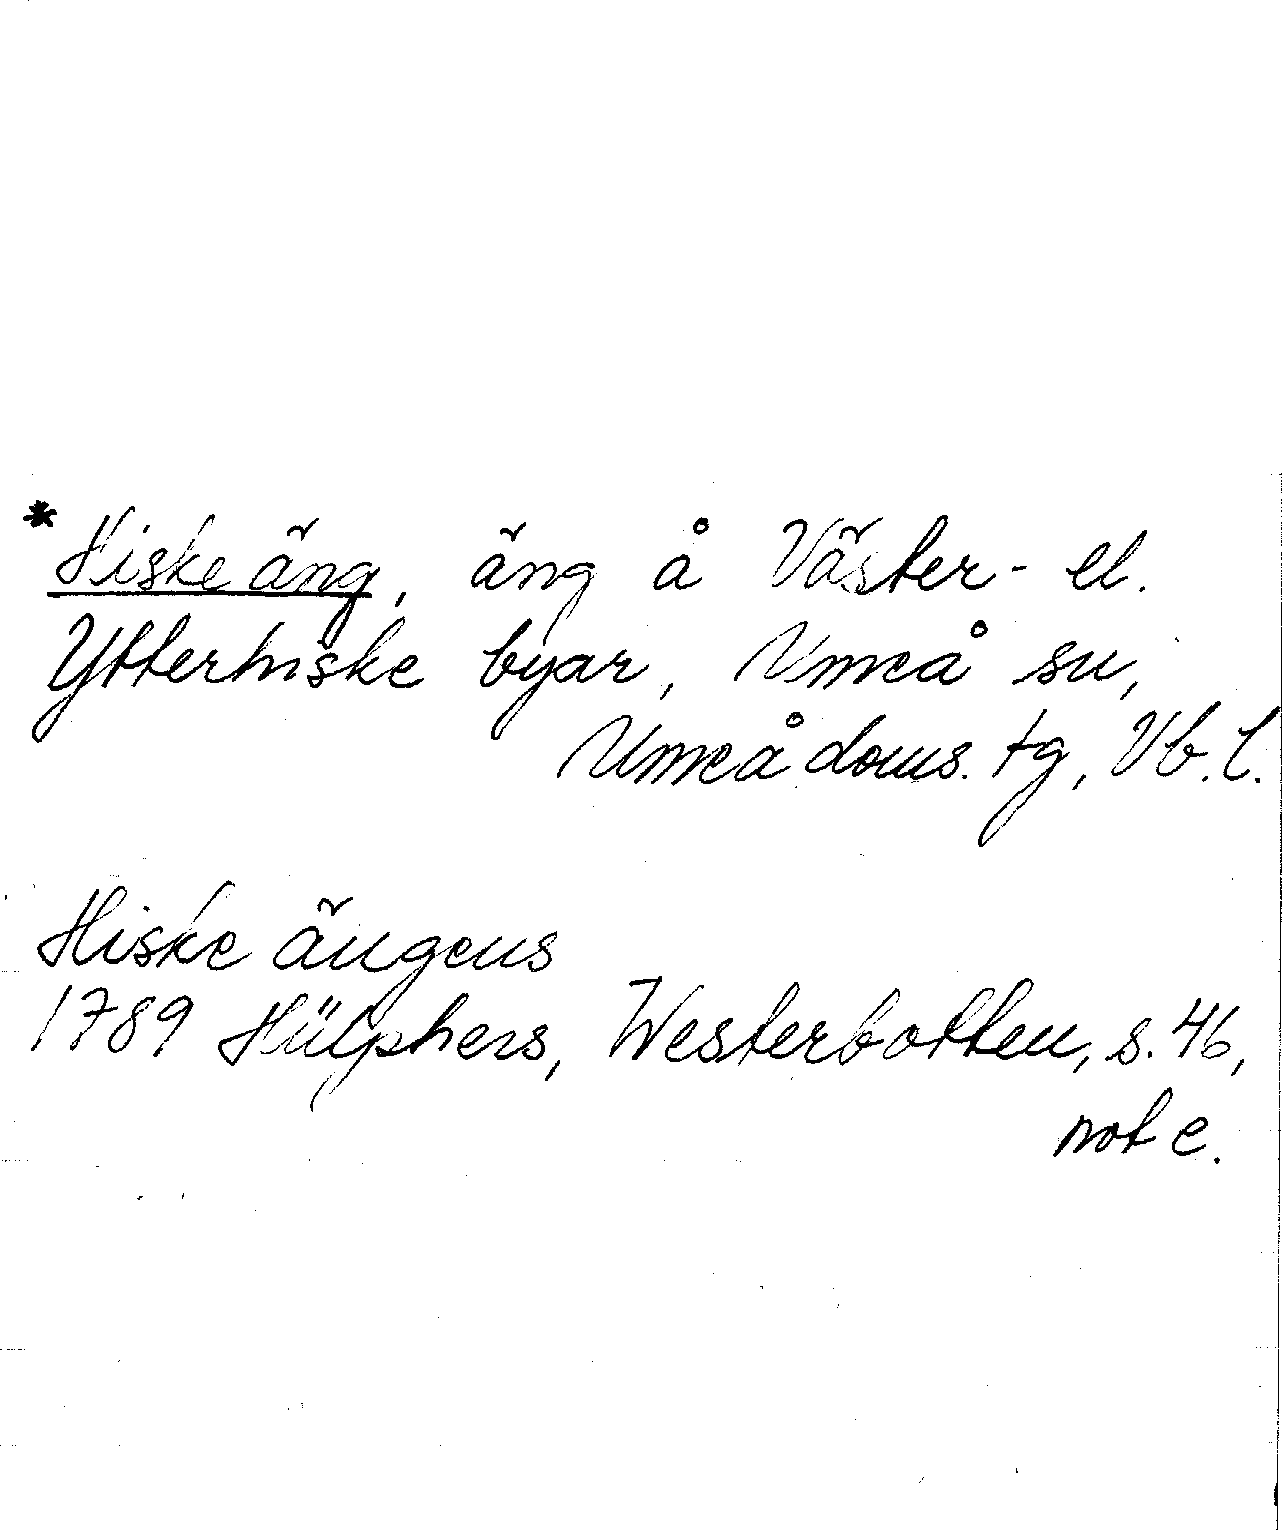 *Hiske äng, äng å Väster- el.
Ytterhiske byar, Umeå sn,
Umeå doms. tg, Vb. l.
Hiske ängens
1789 Hülphers, Westerbotten, s. 46,
not e.